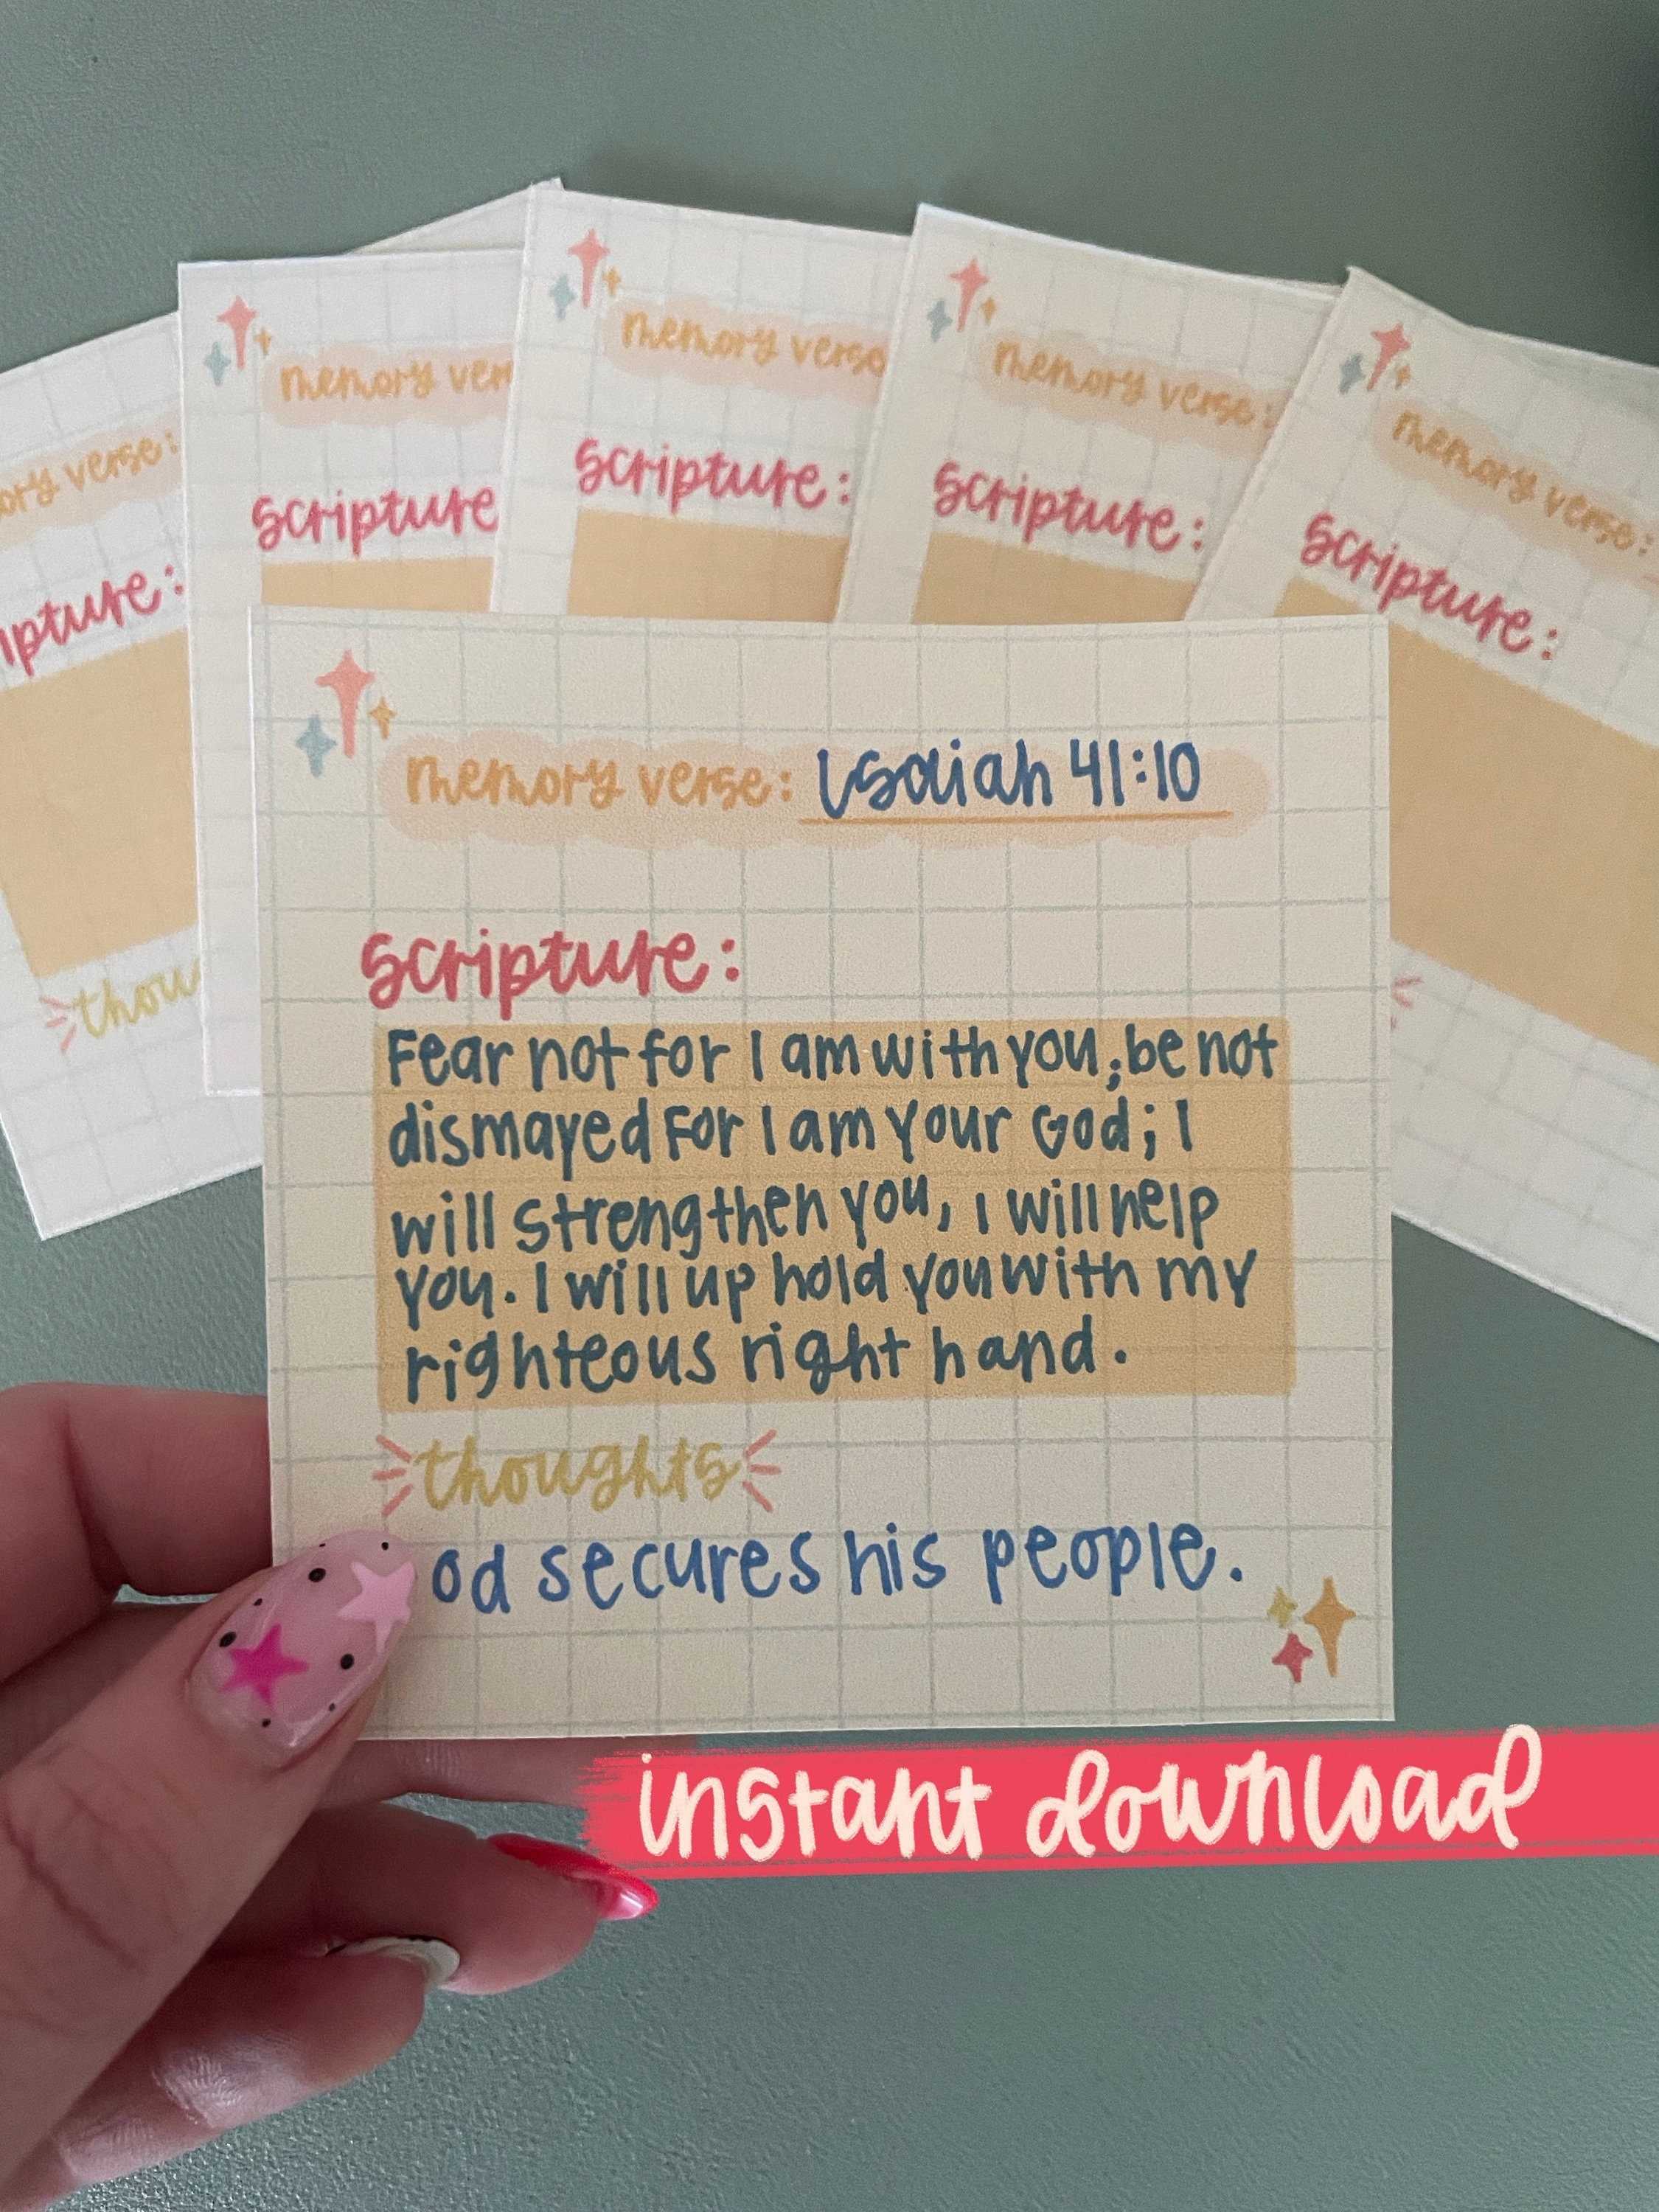 memory verse:
scripture:
memory verse:
scripture
memory
scripture:
memory verse:
scripture:
memory verse:
scripture:
memory verse: Isaiah 41:10
scripture:
Fear not for I am with you; be not
dismayed for I am your God; I
will strengthen you, I will help
you. I will up hold you with my
righteous right hand.
thoughts
od secures his people.
instant download